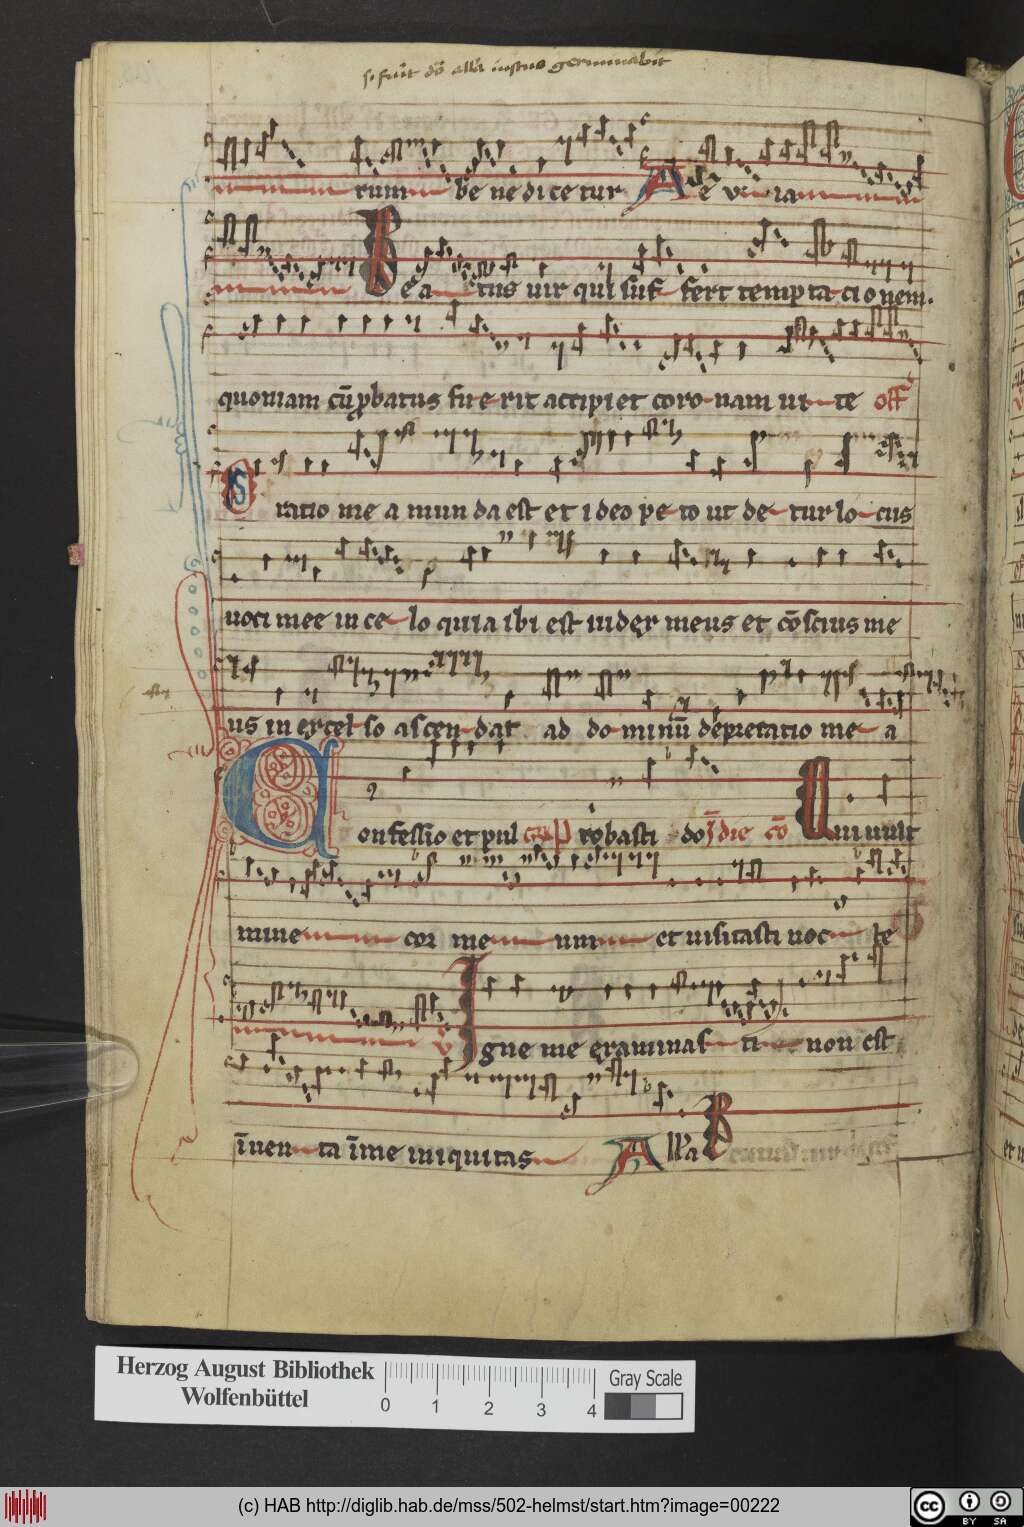 rum be ne dicetur Alle v ia
Bea tus uir qui suf fert temptacionem.
quoniam cū ꝓbatus fuerit accipiet coronam uite off
Oratio me a munda est et ideo peto ut detur locus
uoci mee in celo quia ibi est iudex meus et cōscius me
us in excelso ascendat ad dominū deprecatio mea
Confessio et pul cō P robasti do I die cō
mine cor meum et uisitasti nocte
V Igne me examinasti non est
īuenta ī me iniquitas All'a B
Herzog August Bibliothek
Wolfenbüttel
0 1 2 3 4
Gray Scale
(c) HAB http://diglib.hab.de/mss/502-helmst/start.htm?image=00222
cc BY SA